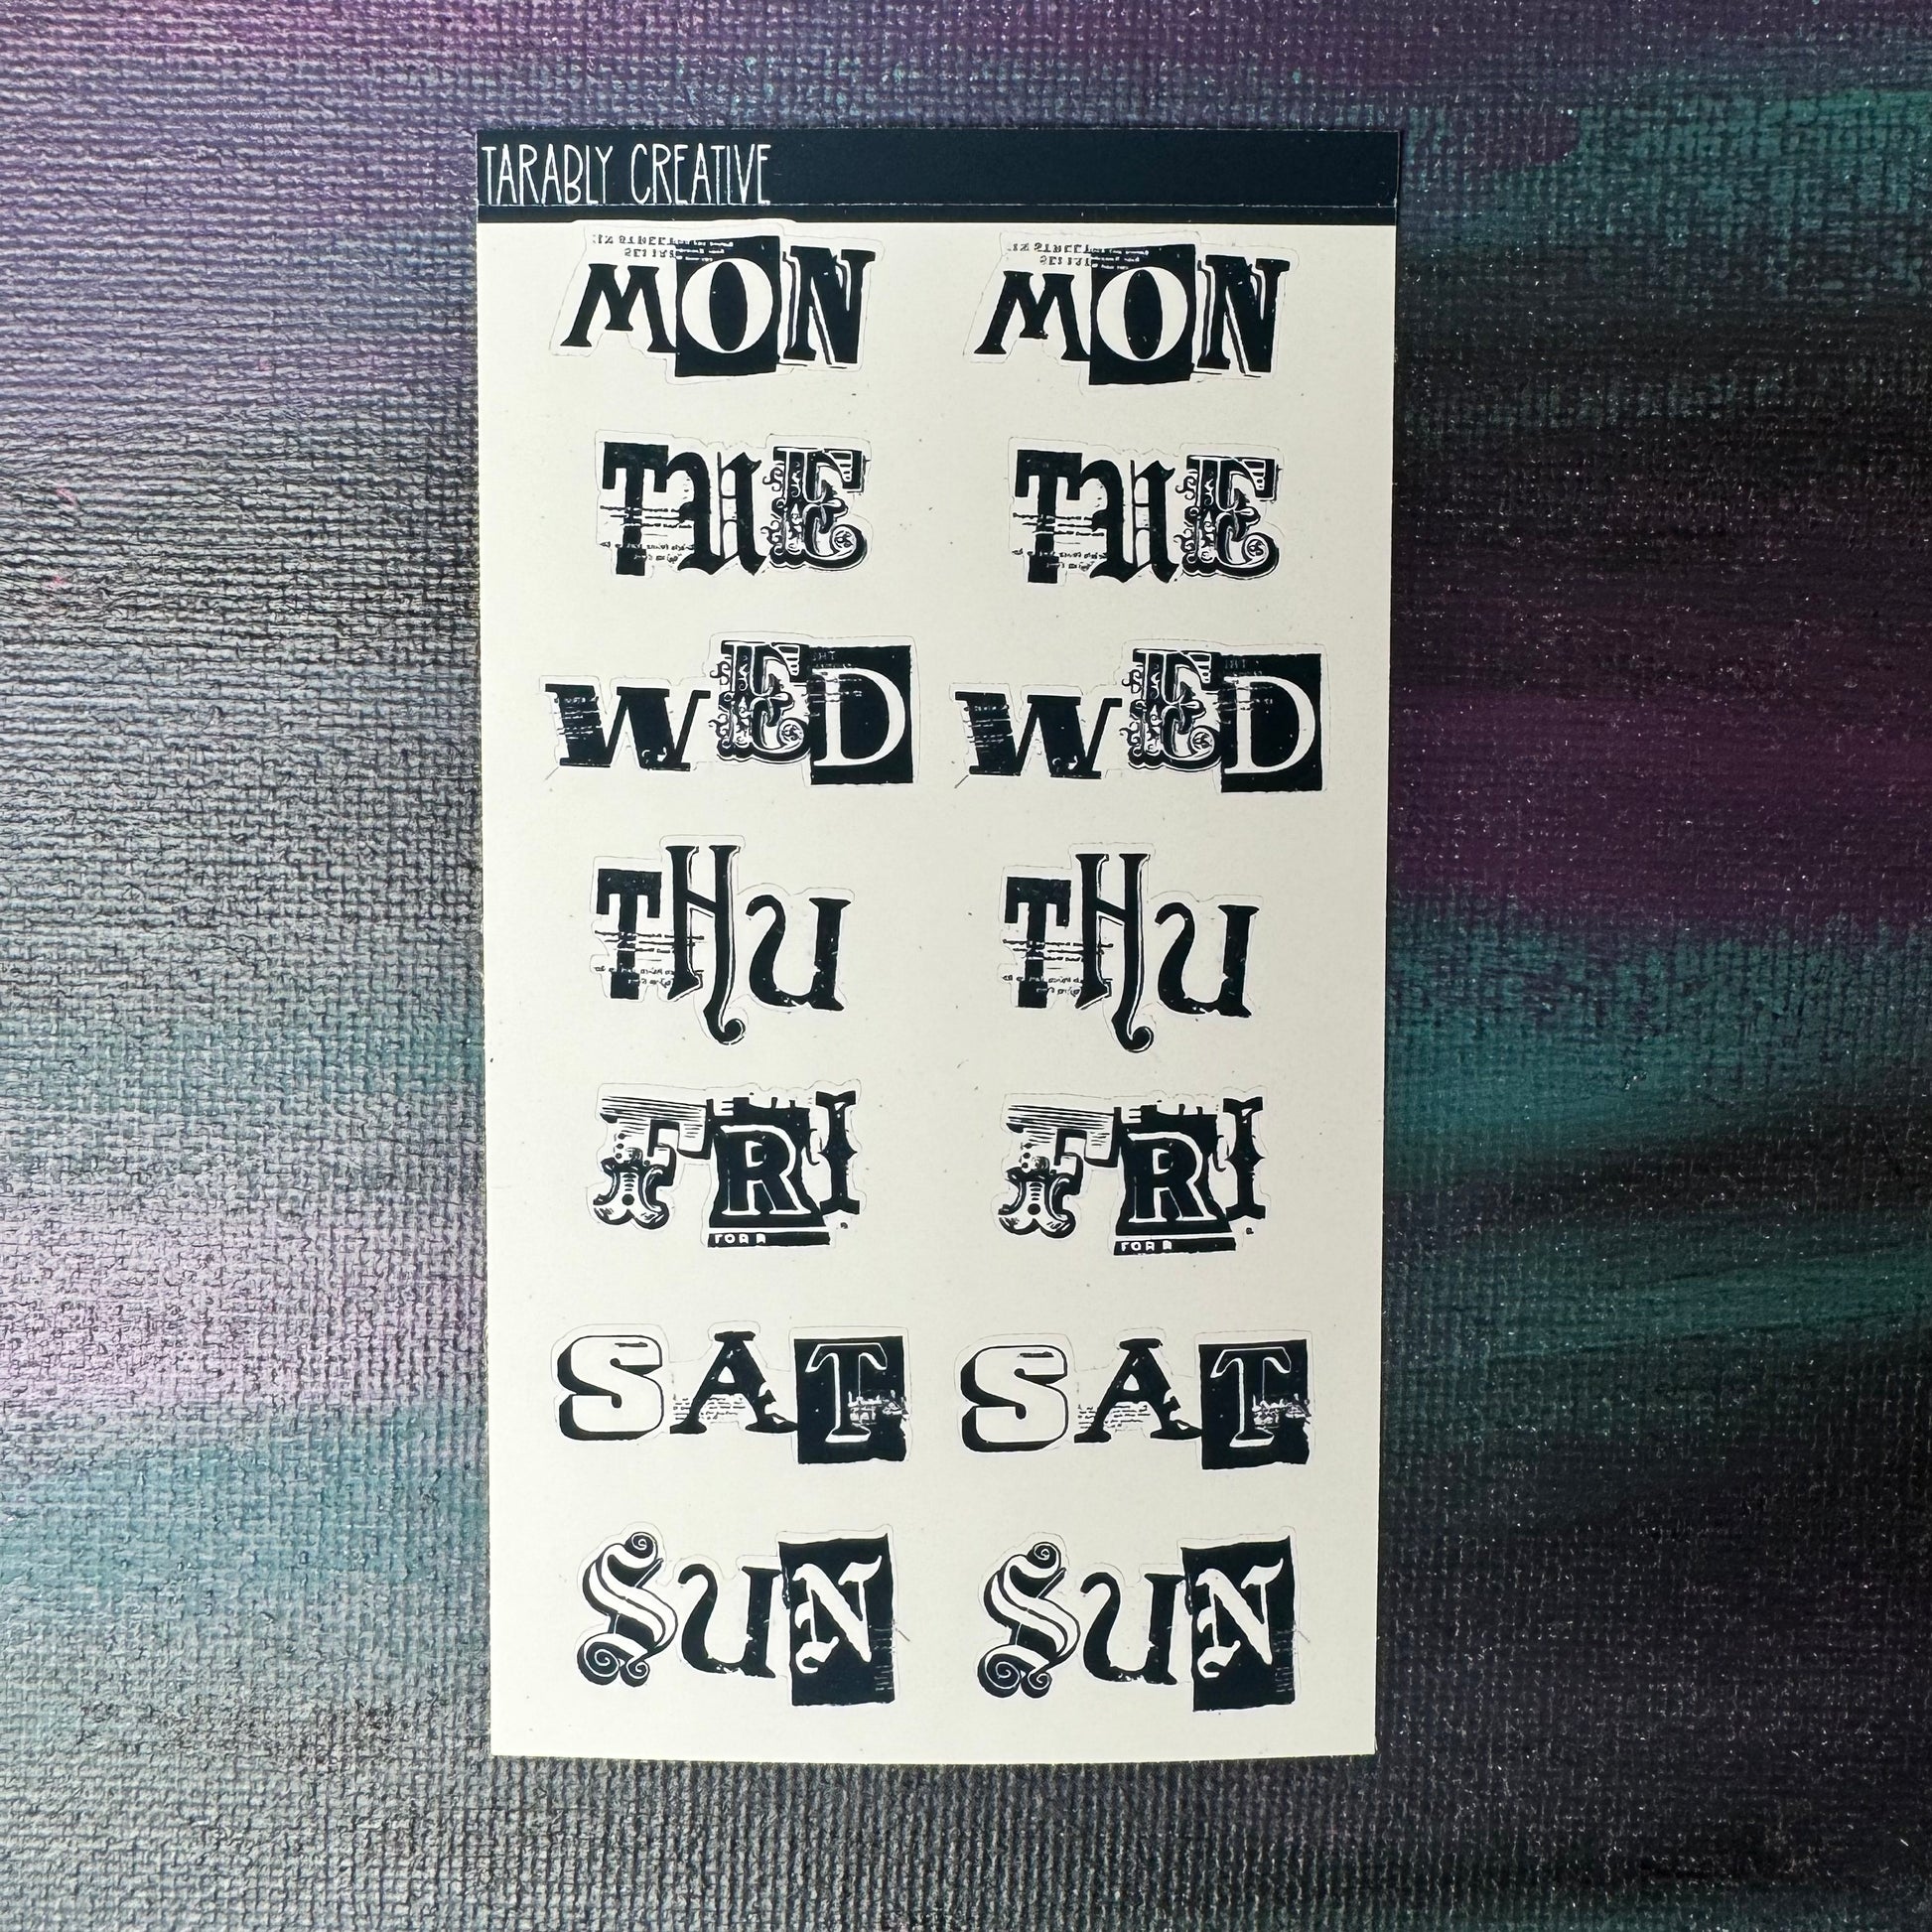 TARABLY CREATIVE
MON MON
TUE TUE
WED WED
THU THU
FRI FRI
FOR A FOR A
SAT SAT
SUN SUN